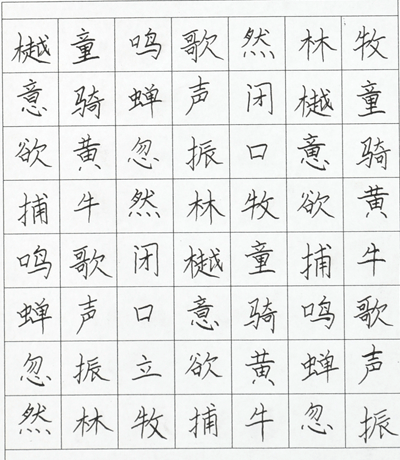 樾童鸣歌然林牧
意骑蝉声闭樾童
欲黄忽振口意骑
捕牛然林牧欲黄
鸣歌闭樾童捕牛
蝉声口意骑鸣歌
忽振立欲黄蝉声
然林牧捕牛忽振